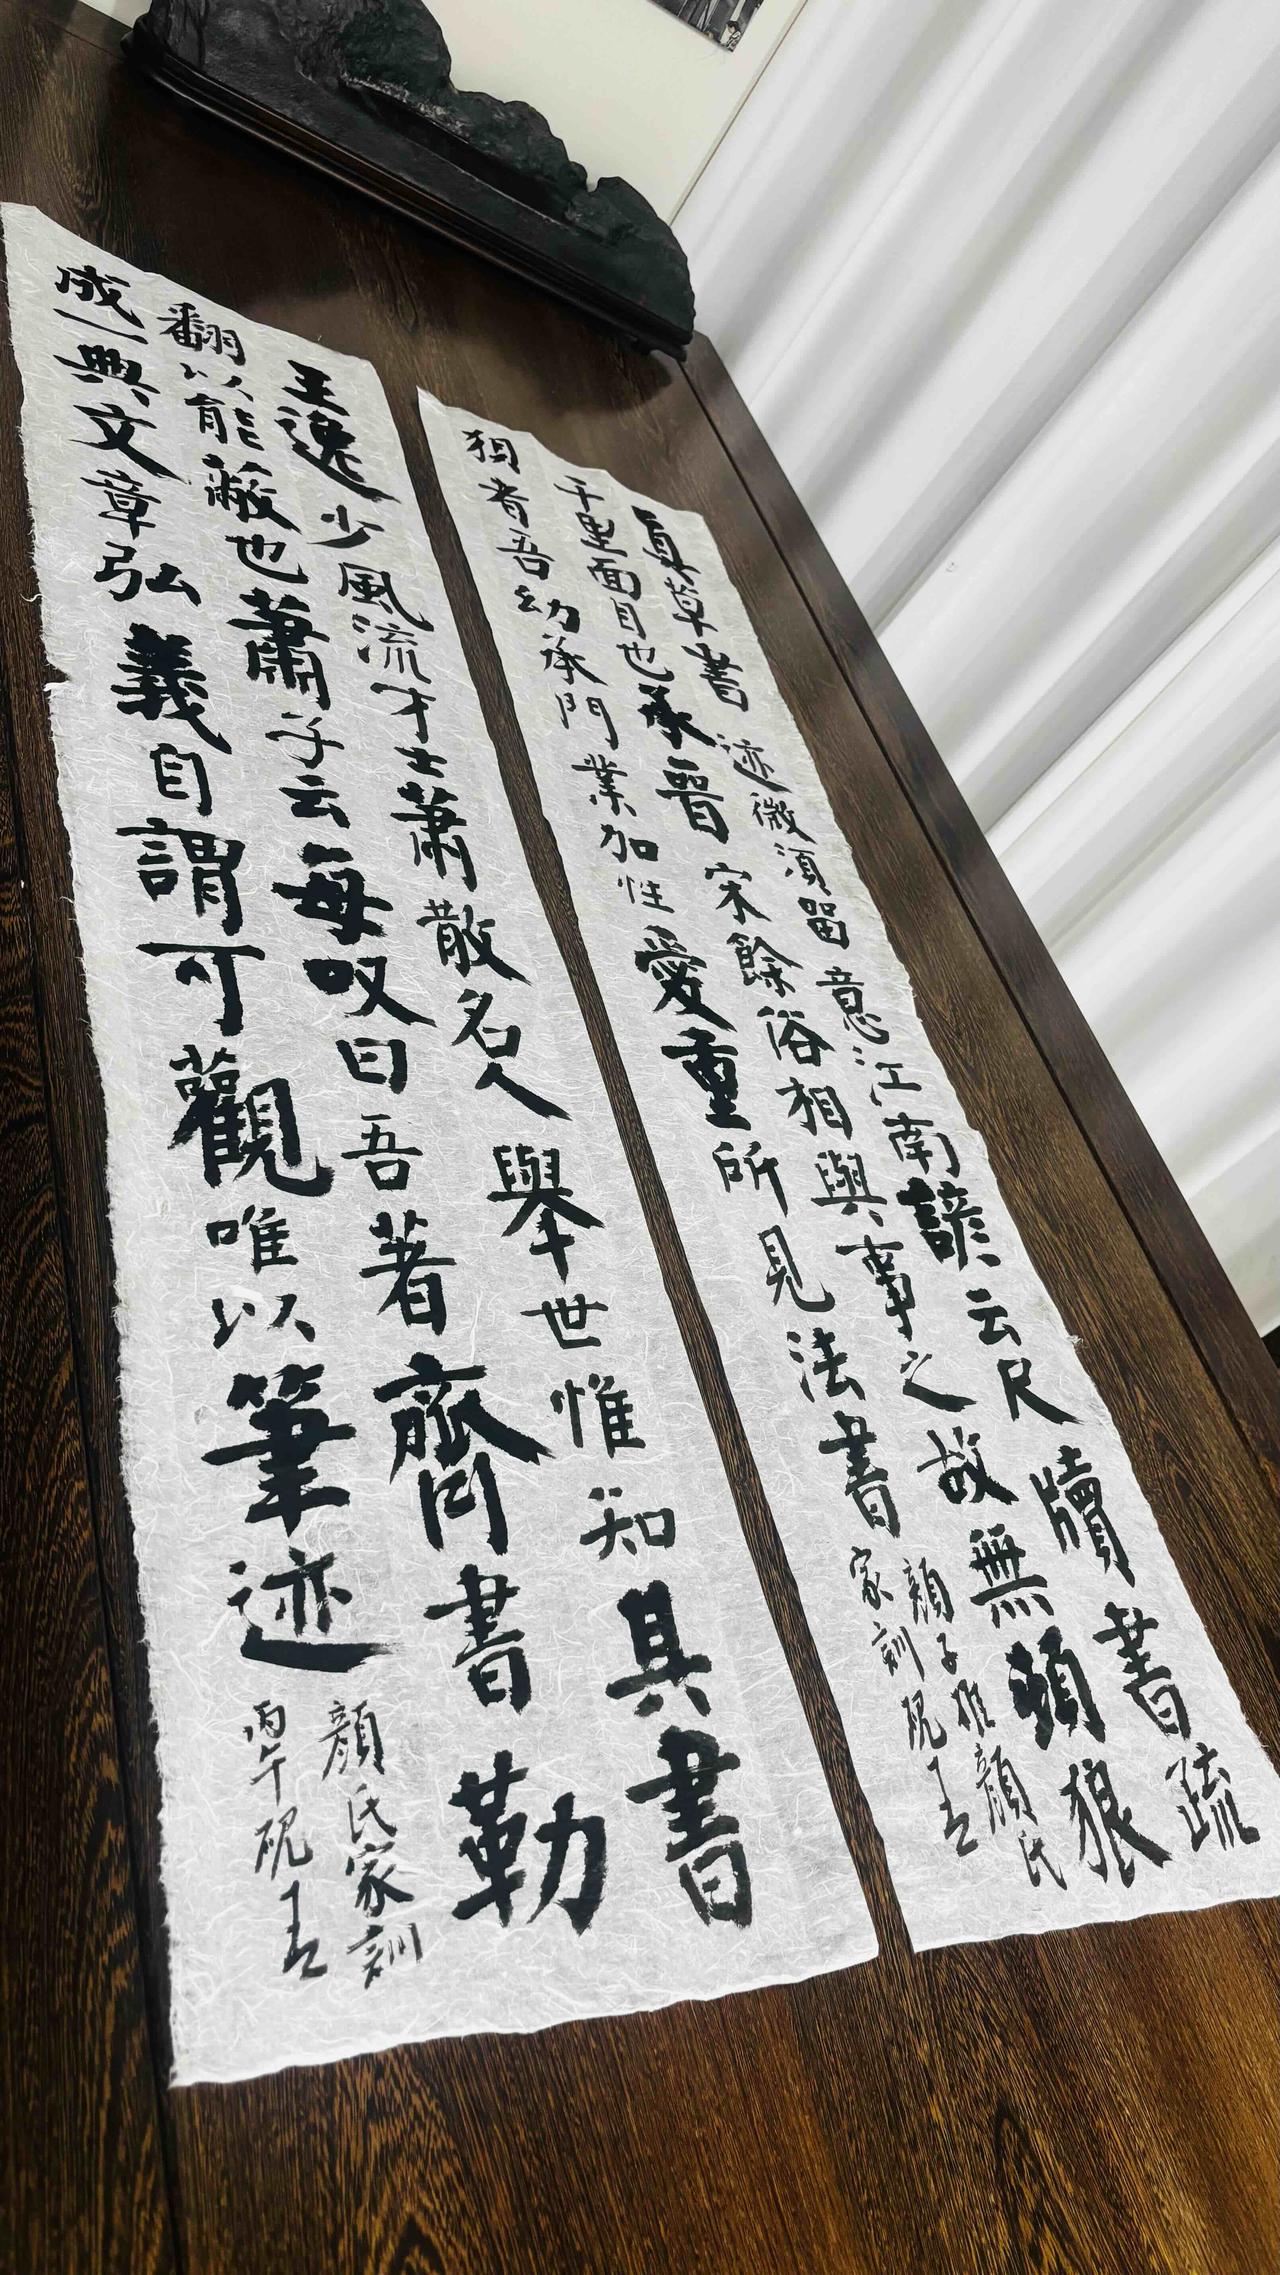 真草書迹微須留意江南諺云尺牘書疏
千里面目也承晉宋餘俗相與事之故無頓狼
狽者吾幼承門業加性愛重所見法書
顏之推顏氏
家訓硯
王逸少風流才士蕭散名人舉世惟知其書
翻以能蔽也蕭子云每叹曰吾著齊書勒
成一典文章弘義自謂可觀唯以筆迹
顏氏家訓
丙午硯